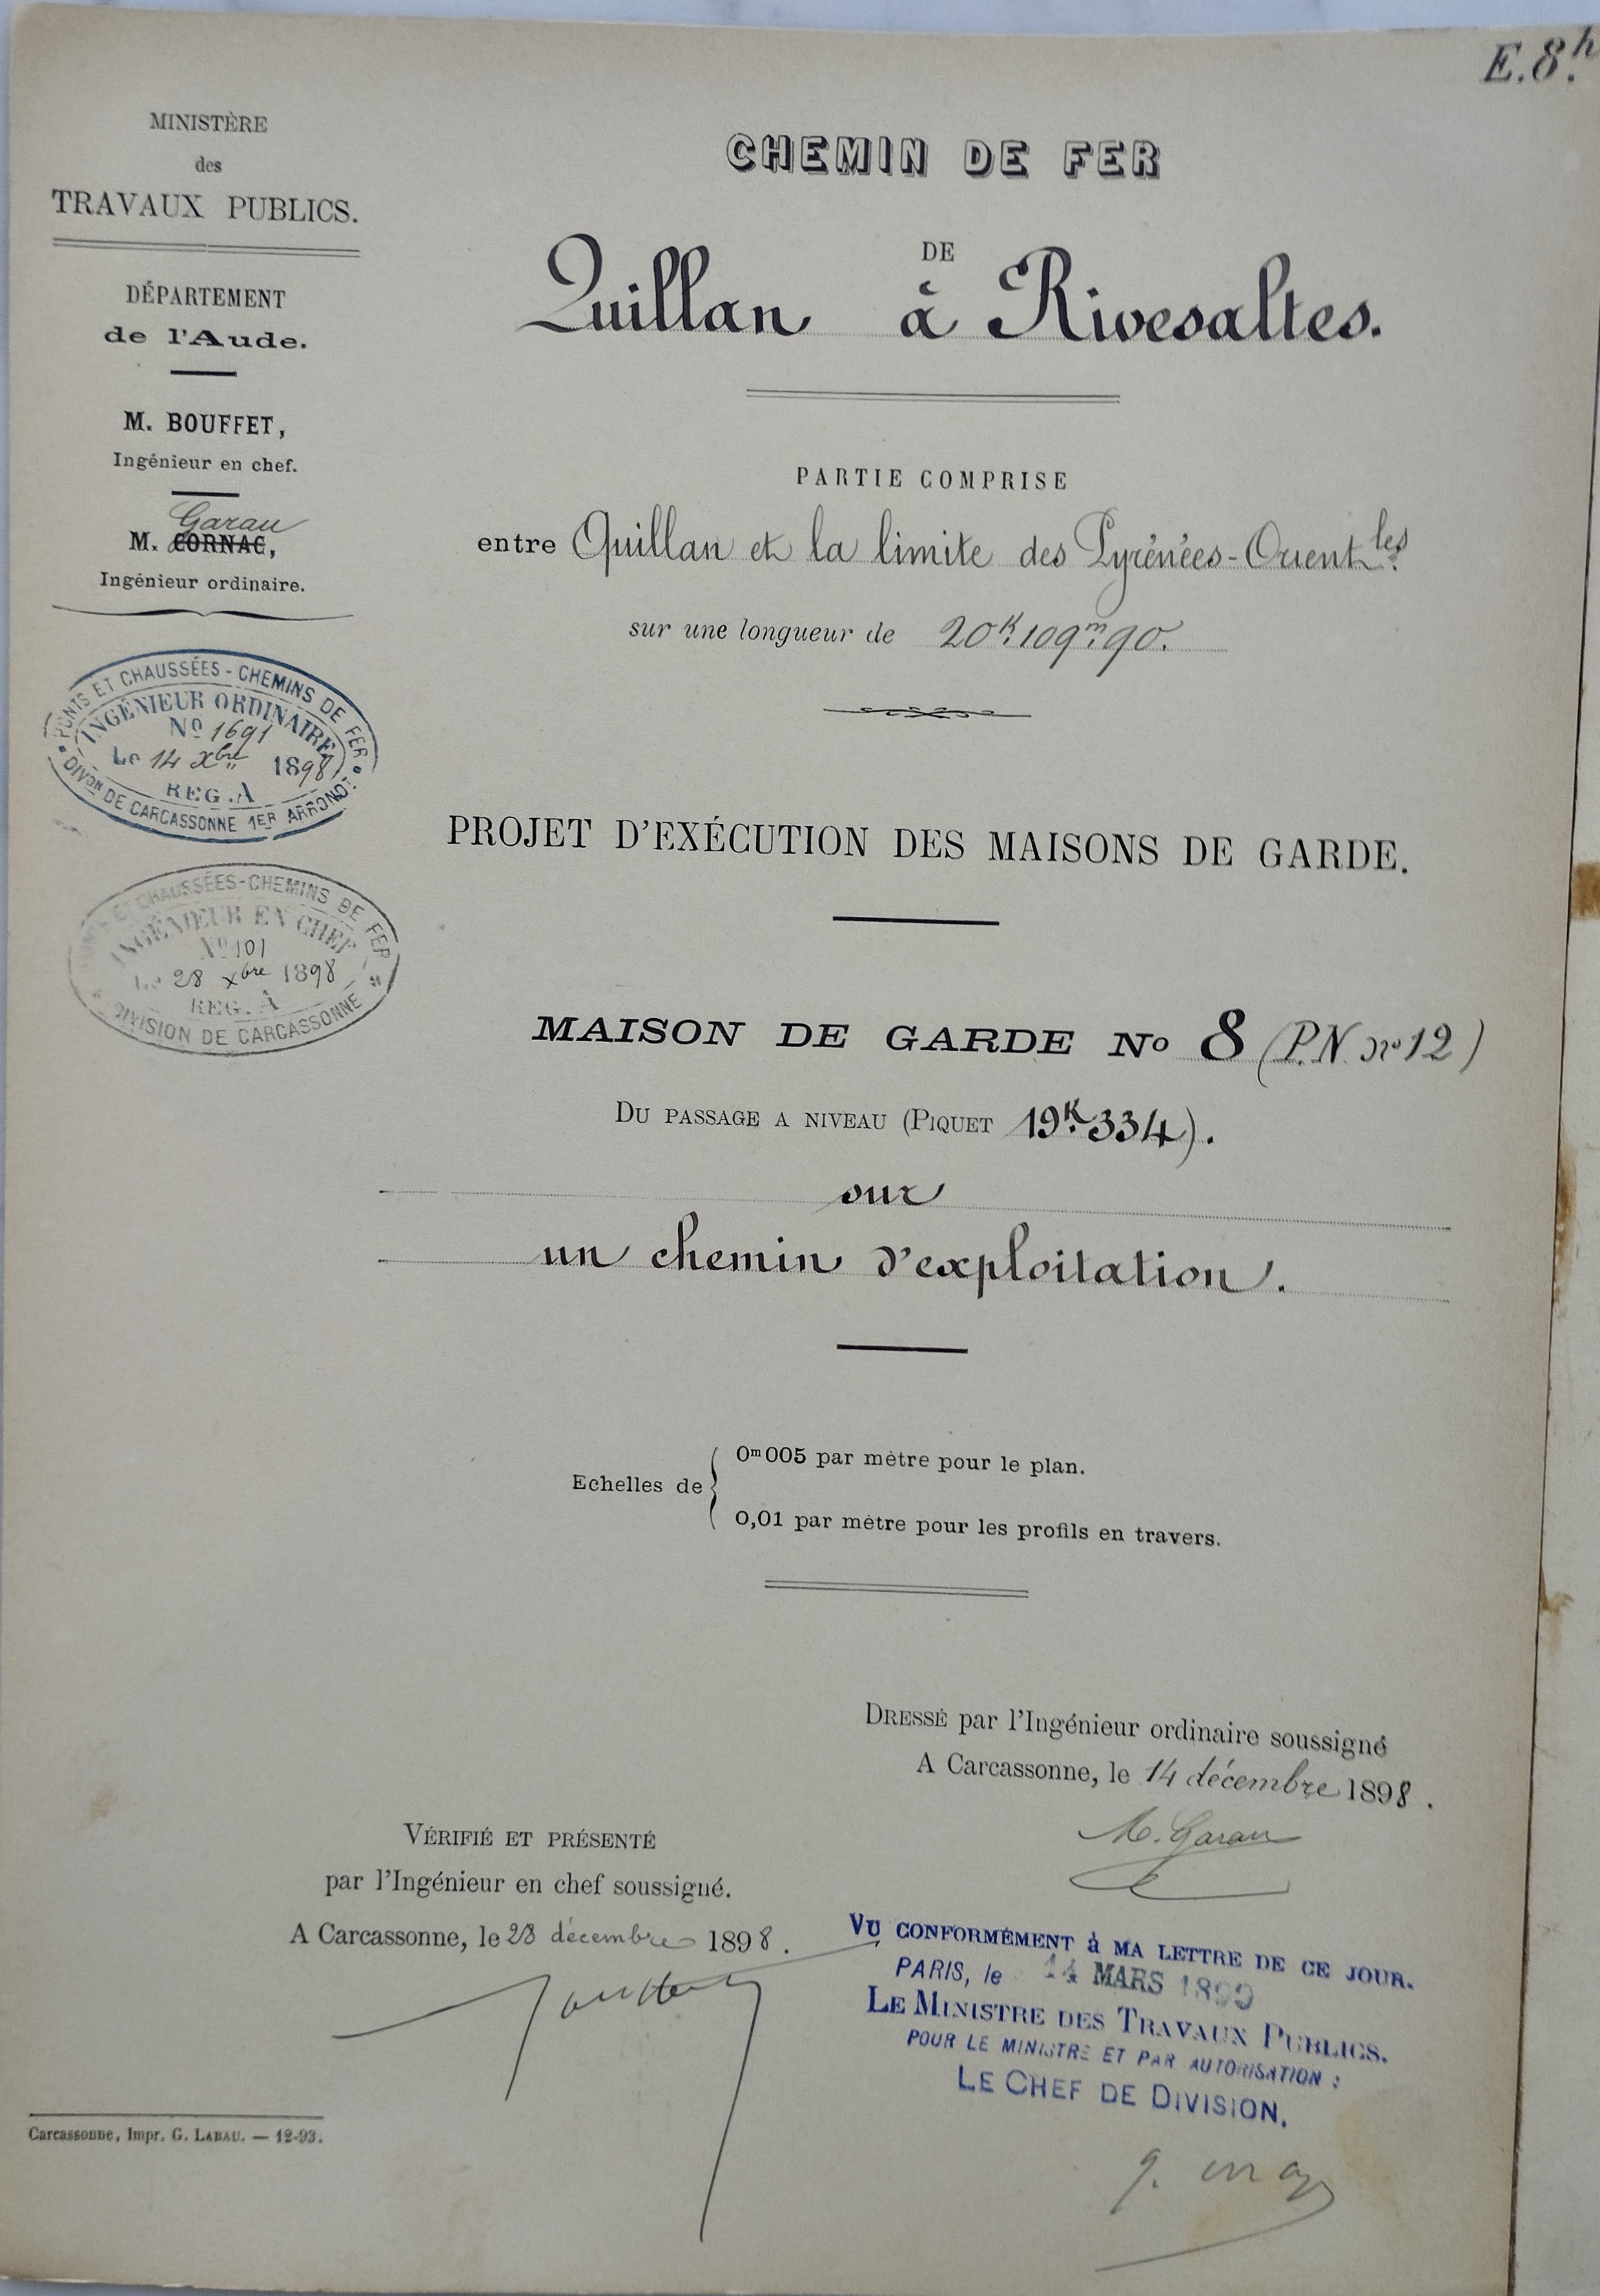 E.8.h
MINISTÈRE
des
TRAVAUX PUBLICS.
DÉPARTEMENT
de l'Aude.
M. BOUFFET,
Ingénieur en chef.
Garau
M. CORNAC,
Ingénieur ordinaire.
PONTS ET CHAUSSÉES - CHEMINS DE FER
INGÉNIEUR ORDINAIRE
No 1691
Le 14 Xbre 1898
REG. A
DIVON DE CARCASSONNE 1ER ARRONDT
PONTS ET CHAUSSÉES-CHEMINS DE FER
INGÉNIEUR EN CHEF
No 101
Le 28 xbre 1898
REG. A
DIVISION DE CARCASSONNE
CHEMIN DE FER
DE
Quillan à Rivesaltes.
PARTIE COMPRISE
entre Quillan et la limite des Pyrénées-Orient.les
sur une longueur de 20K.109m.90.
PROJET D'EXÉCUTION DES MAISONS DE GARDE.
MAISON DE GARDE No 8 (P.N. no 12)
DU PASSAGE A NIVEAU (PIQUET 19K.334).
sur
un chemin d'exploitation.
Echelles de
0m005 par mètre pour le plan.
0,01 par mètre pour les profils en travers.
DRESSÉ par l'Ingénieur ordinaire soussigné
A Carcassonne, le 14 décembre 1898.
M. Garau
VÉRIFIÉ ET PRÉSENTÉ
par l'Ingénieur en chef soussigné.
A Carcassonne, le 28 décembre 1898.
Bouffet
VU CONFORMÉMENT à MA LETTRE DE CE JOUR.
PARIS, le 14 MARS 1899
LE MINISTRE DES TRAVAUX PUBLICS.
POUR LE MINISTRE ET PAR AUTORISATION :
LE CHEF DE DIVISION,
Carcassonne, Impr. G. LABAU. — 12-93.